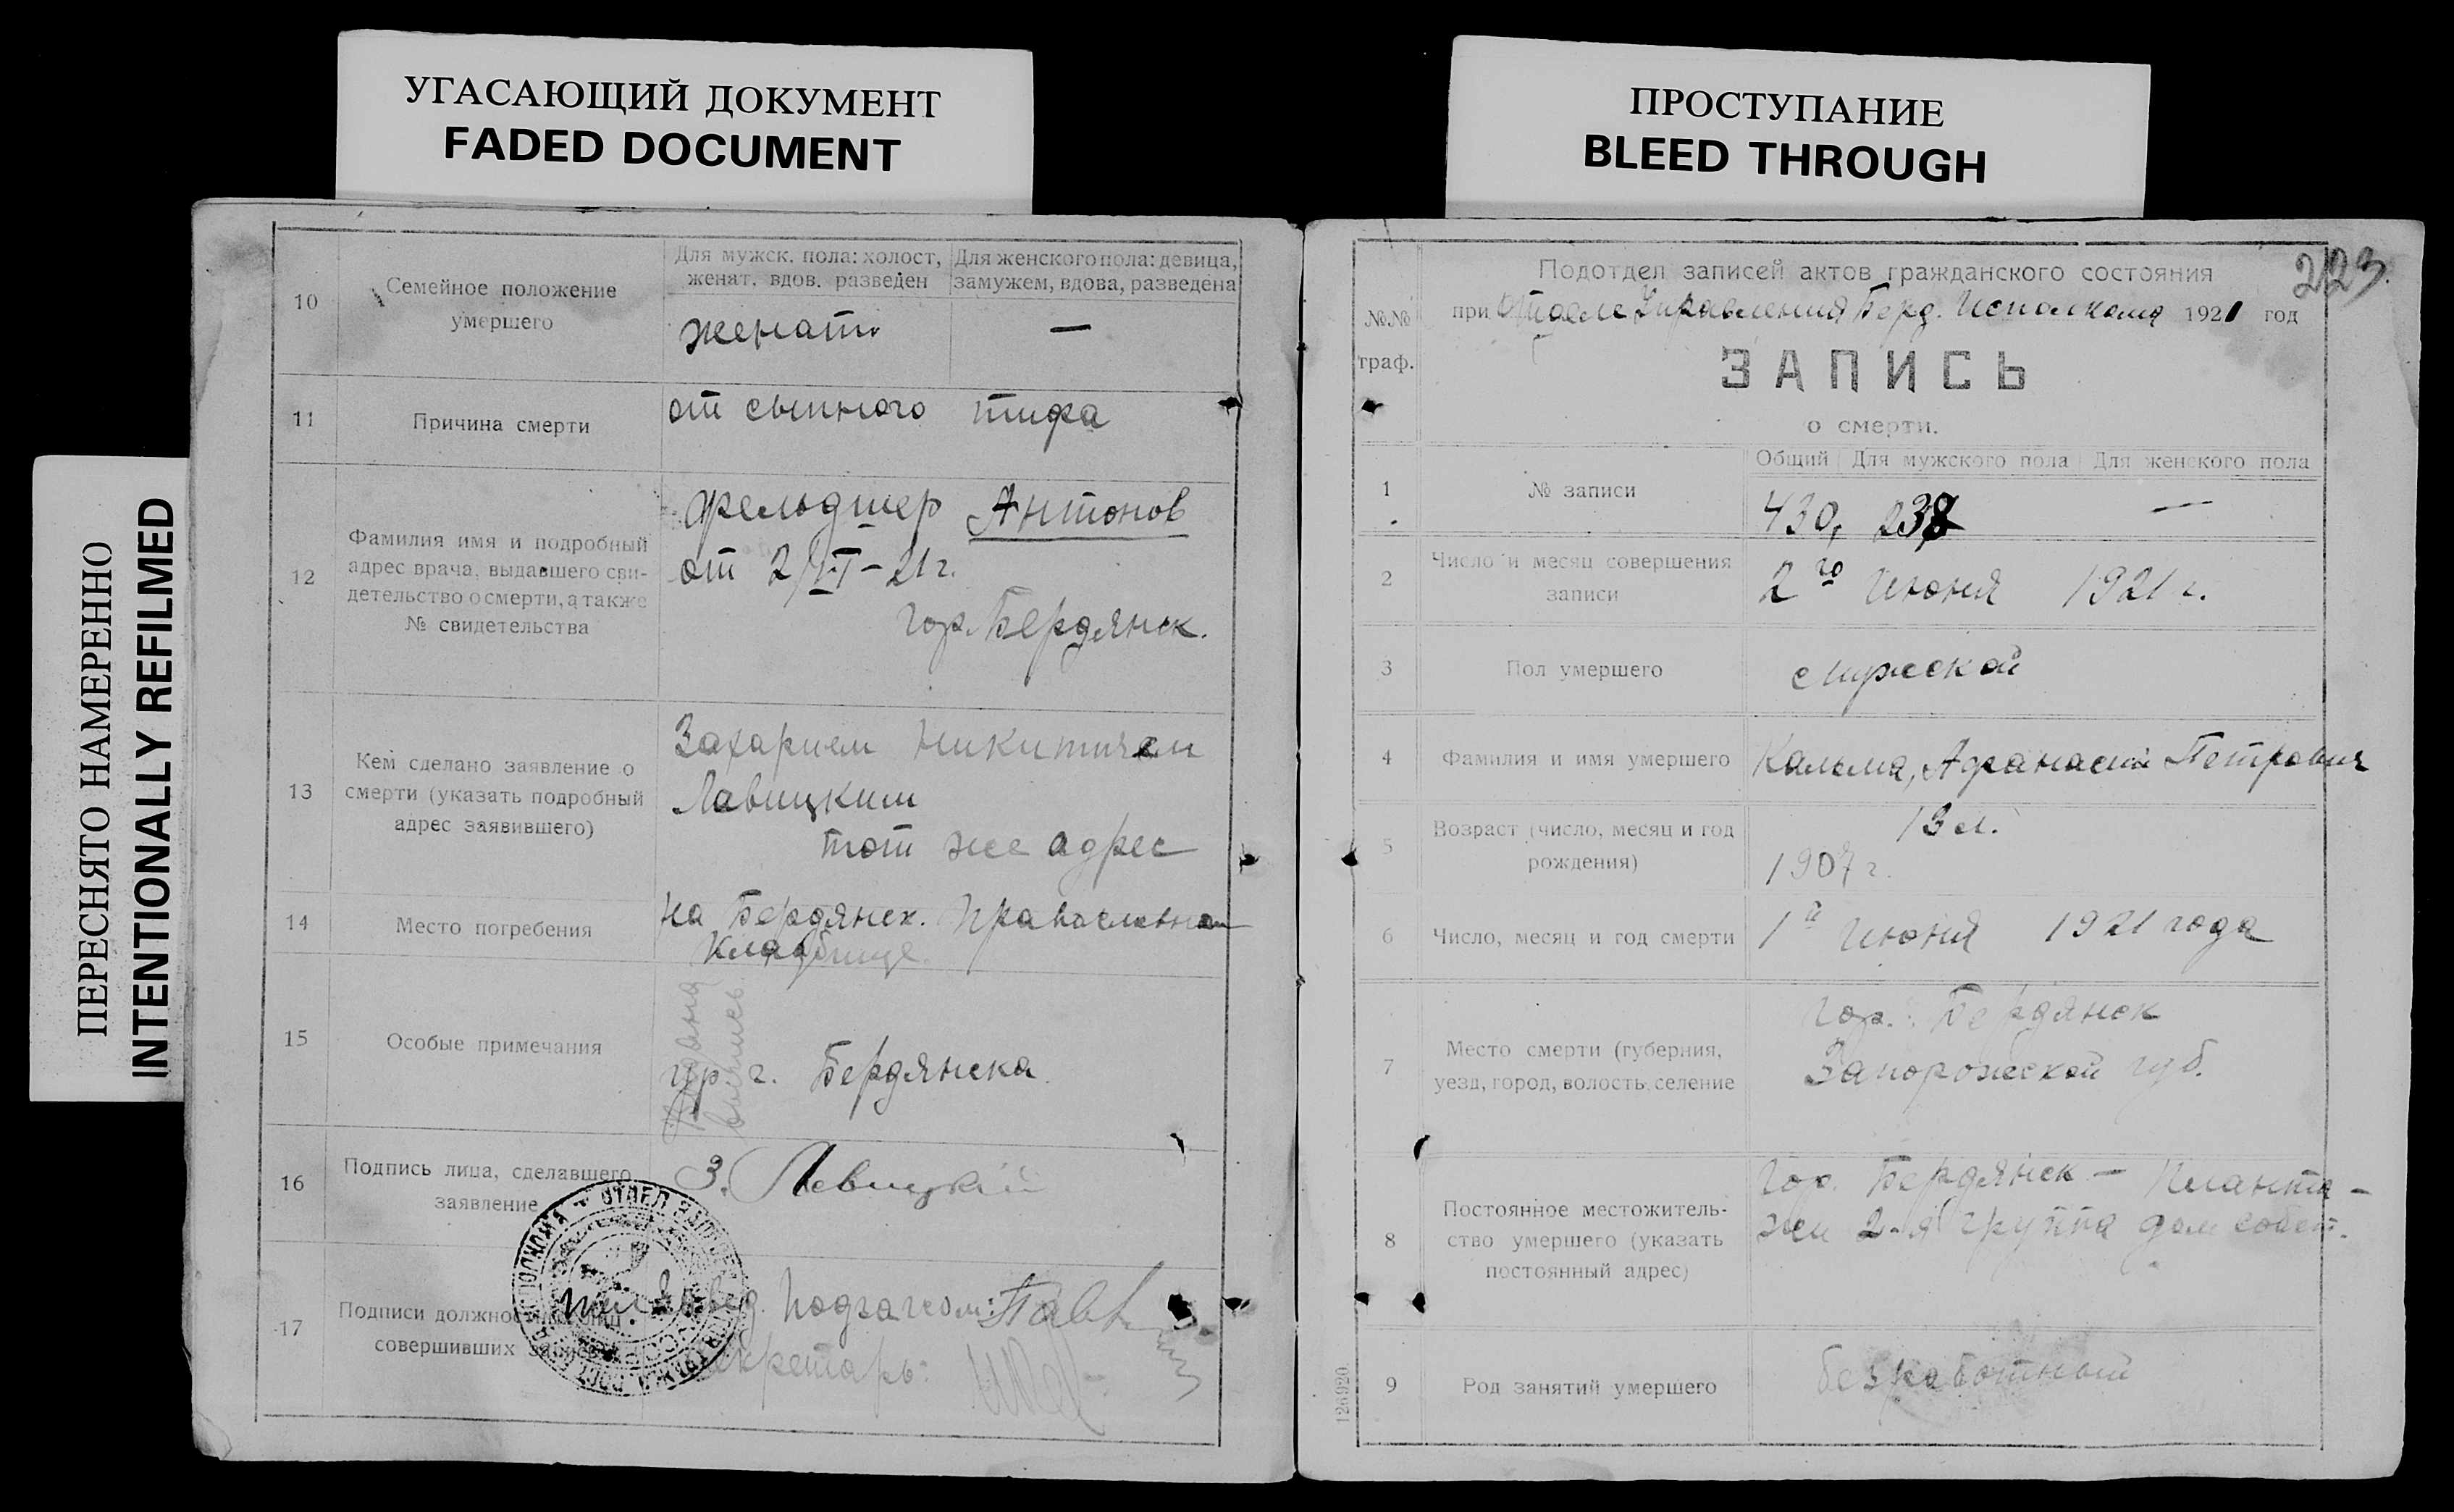 УГАСАЮЩИЙ ДОКУМЕНТ
FADED DOCUMENT
ПРОСТУПАНИЕ
BLEED THROUGH
ПЕРЕСНЯТО НАМЕРЕННО
INTENTIONALLY REFILMED
10
Семейное положение
умершего
Для мужск. пола: холост,
женат, вдов. разведен
Для женского пола: девица,
замужем, вдова, разведена
женат
—
11
Причина смерти
от сыпного тифа
12
Фамилия имя и подробный
адрес врача, выдавшего сви-
детельство о смерти, а также
№ свидетельства
фельдшер Антонов
от 2/VI – 21 г.
гор. Бердянск.
13
Кем сделано заявление о
смерти (указать подробный
адрес заявившего)
Захарием Никитичем
Лавицким
тот же адрес
14
Место погребения
на Бердянск. Православном
кладбище.
15
Особые примечания
выпись
гр. г. Бердянска
16
Подпись лица, сделавшего
заявление
З. Левицкий
17
Подписи должностных лиц
совершивших запись
Завед. Подзагсом:
Секретарь:
223.
№№
граф.
Подотдел записей актов гражданского состояния
при Отделе Управления Берд. Исполкома 1921 год
ЗАПИСЬ
о смерти.
1
№ записи
Общий
Для мужского пола
Для женского пола
430,
238
—
2
Число и месяц совершения
записи
2го Июня 1921 г.
3
Пол умершего
мужской
4
Фамилия и имя умершего
Кальма, Афанасий Петрович
5
Возраст (число, месяц и год
рождения)
13 л.
1907 г.
6
Число, месяц и год смерти
1й Июня 1921 года
7
Место смерти (губерния,
уезд, город, волость, селение
гор. Бердянск
Запорожской губ.
8
Постоянное местожитель-
ство умершего (указать
постоянный адрес)
Гор. Бердянск – Планта-
жи 2-я группа дом собст.
9
Род занятий умершего
безработный
126920